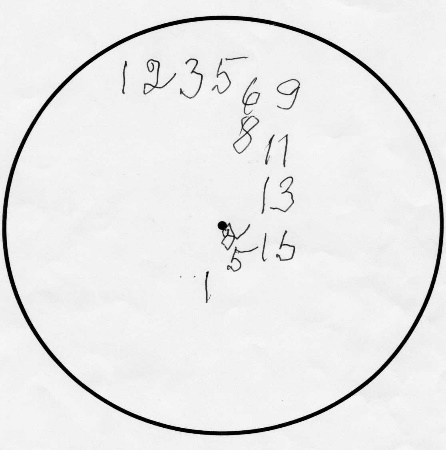 1 2 3 5 6 9
8 11
13
15
5
1